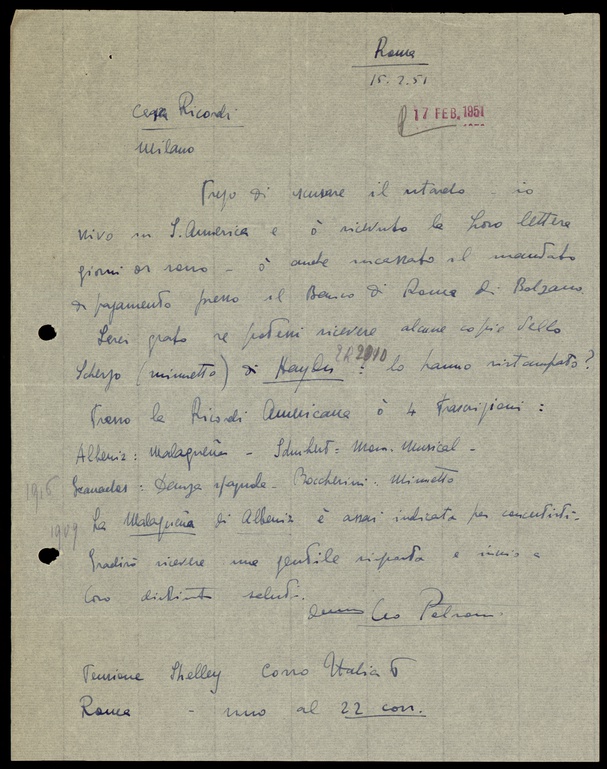 Roma
15.2.51
Casa Ricordi
17 FEB. 1951
Milano
Prego di scusare il ritardo - io
vivo in S. America e ò ricevuto la Loro lettera
giorni or sono - ò anche incassato il mandato
di pagamento presso il Banco di Roma di Bolzano.
Sarei grato se potessi ricevere alcune copie dello
ER 2010
Scherzo (minuetto) di Haydn: lo hanno ristampato?
Presso la Ricordi Americana ò 4 Trascrizioni:
Albeniz: Malagueña - Schubert: Mom. Musical -
1915
Granados: Danza spagnola - Boccherini: Minuetto
1909
La Malagueña di Albeniz è assai indicata per concertisti -
Gradirò ricevere una gentile risposta e invio a
Loro distinti saluti.
Leo Petroni
Pensione Shelley Corso Italia 5
Roma - sino al 22 corr.